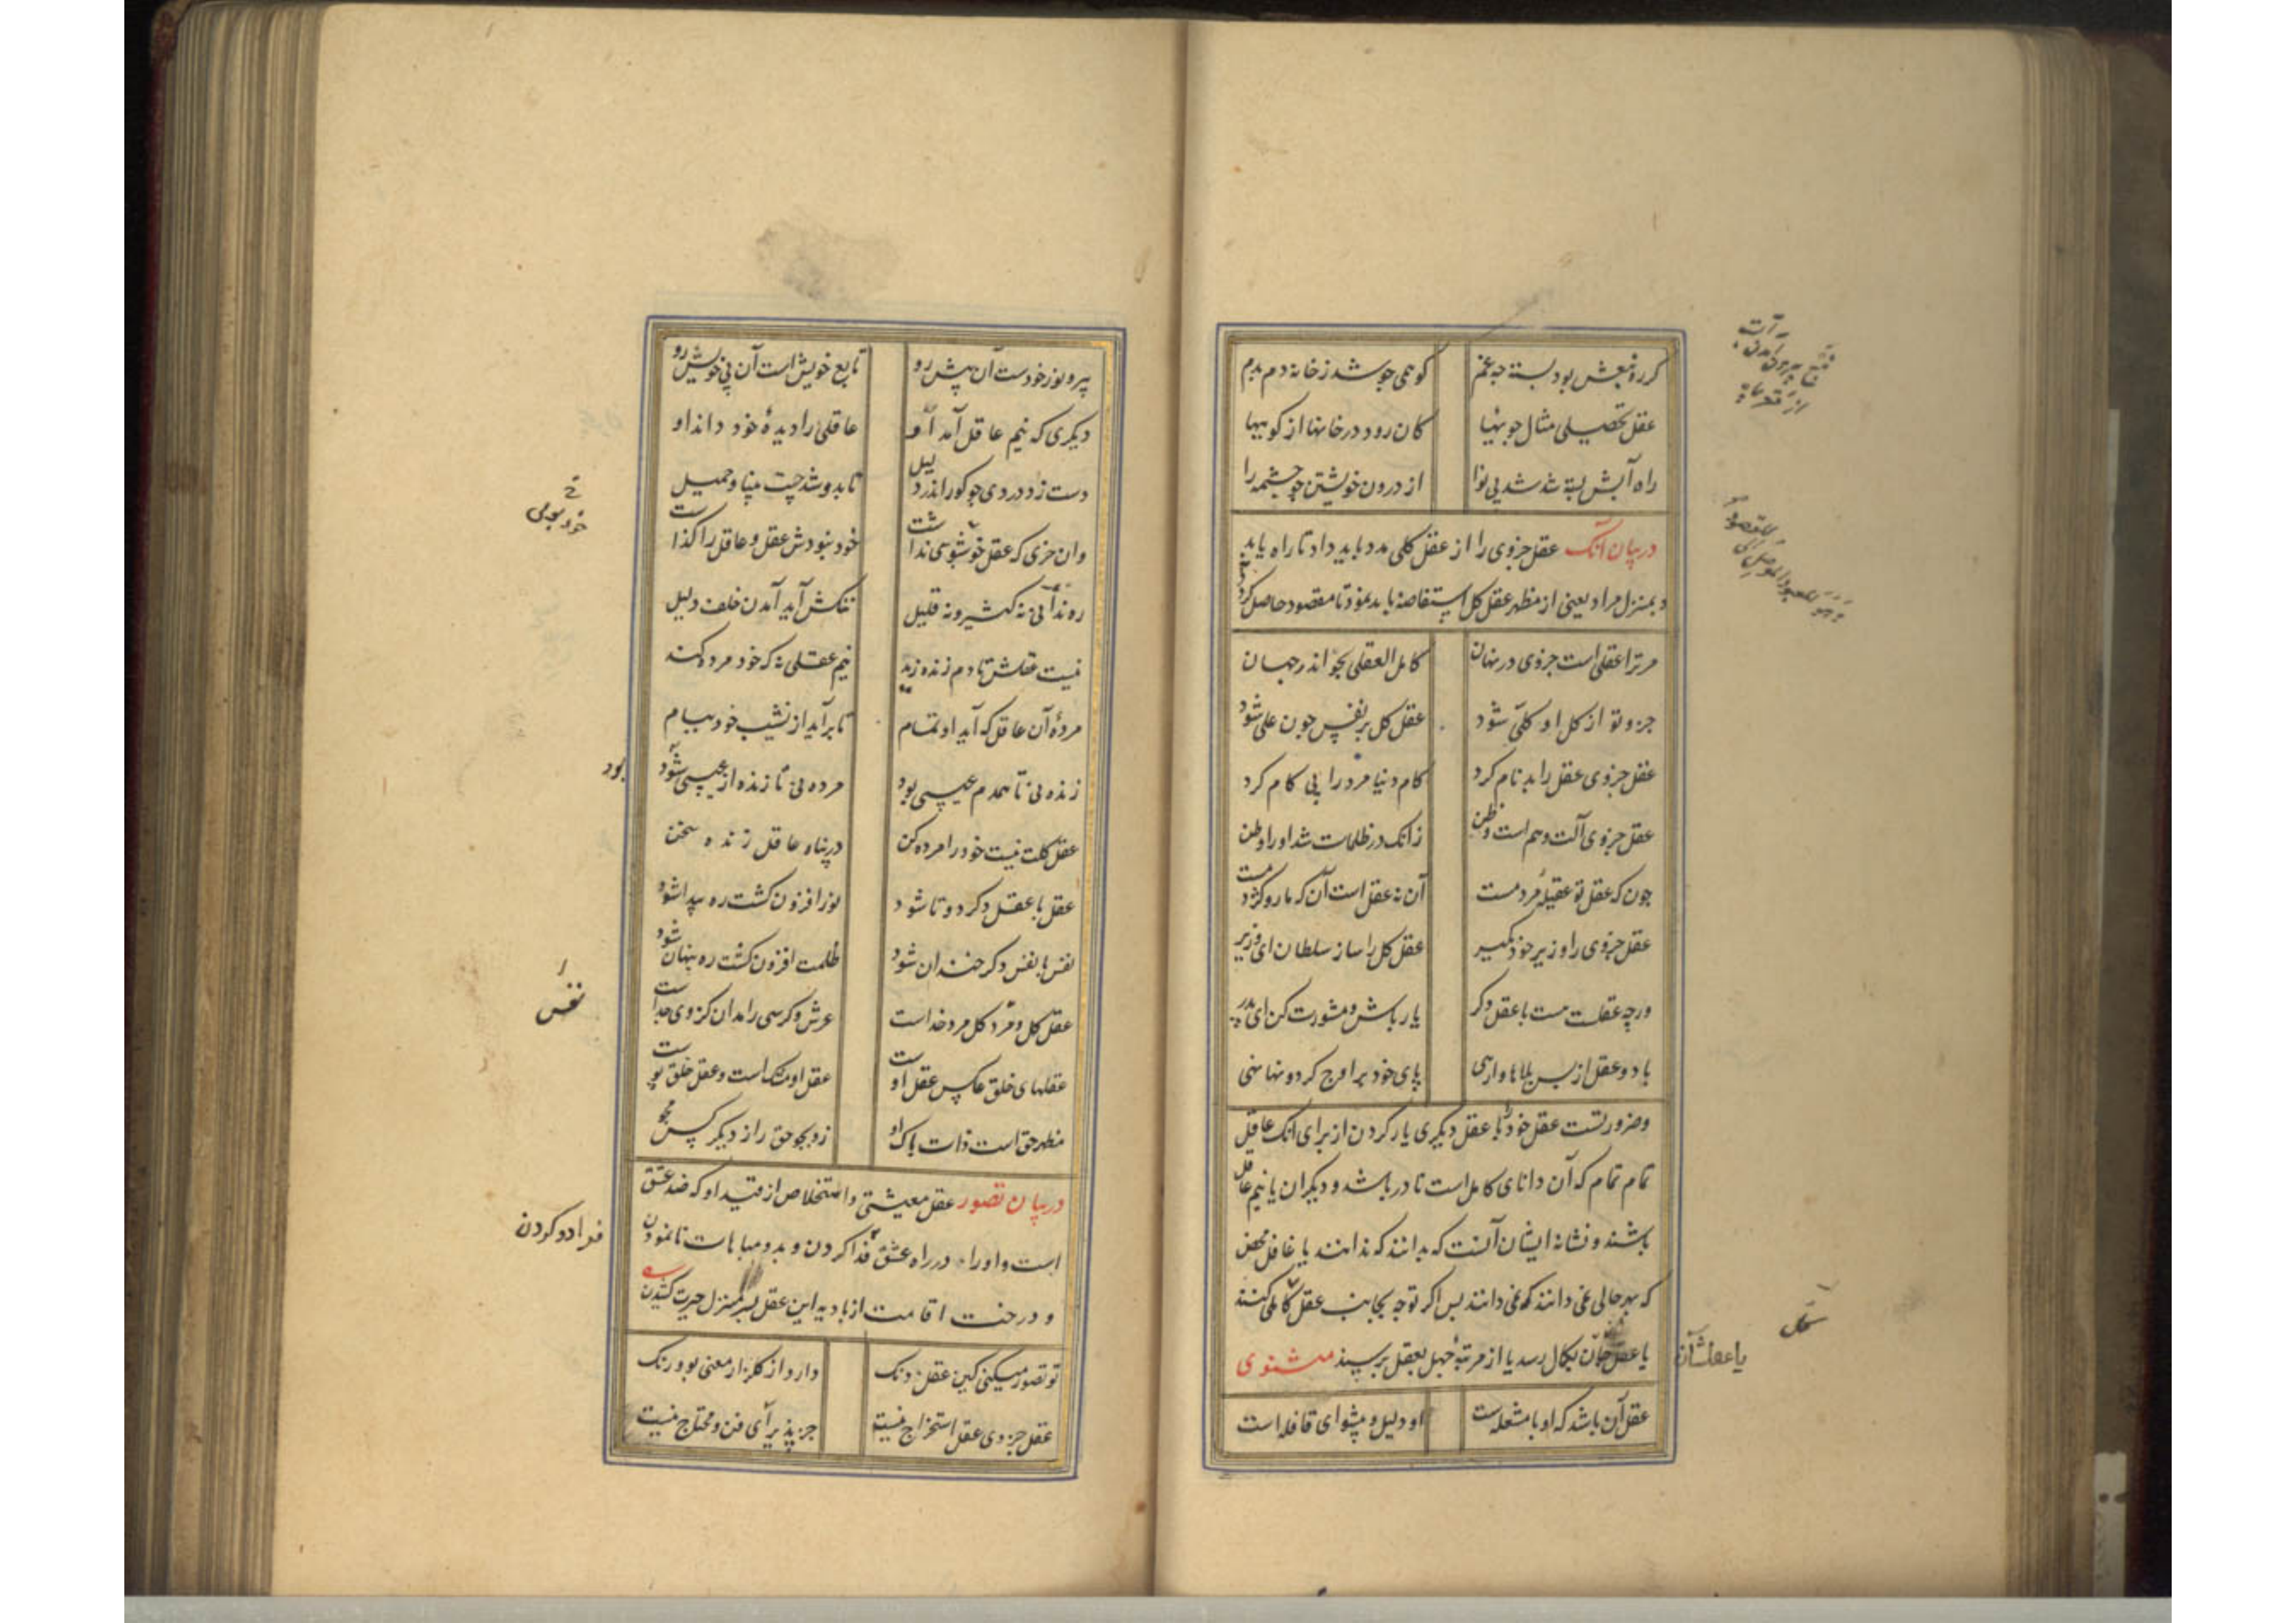 کر ره نبعش بود بسته چه غم
کو همی جوشد ز خانه دم بدم
عقل تحصیلی مثال جویها
کان رود در خانها از کویها
راه آبش بسته شد شد بی نوا
از درون خویشتن جو چشمه را
در بیان آنک عقل جزوی را از عقل کلی مدد باید داد تا راه یابد
و بمنزل مراد یعنی از مظهر عقل کل استفاضه باید نمود تا مقصود حاصل کردد
مر ترا عقلی است جزوی در نهان
کامل العقلی بجو اندر جهان
جزو تو از کل او کلی شود
عقل کل بر نفس چون غلی شود
عقل جزوی عقل را بدنام کرد
کام دنیا مرد را بی کام کرد
عقل جزوی آلت وهم است و ظن
زانک در ظلمات شد او را وطن
چون که عقل تو عقیله مردمست
آن نه عقل است آن که مار و کژدمست
عقل جزوی را وزیر خود مگیر
عقل کل را ساز سلطان ای وزیر
ورچه عقلت هست با عقل دکر
یار باش و مشورت کن ای پدر
با دو عقل از بس بلاها وارهی
پای خود بر اوج کردونها نهی
و ضرورتست عقل خود را با عقل دیکری یار کردن از برای انک عاقل
تمام تمام که آن دانای کامل است نادر باشد و دیکران یا نیم عاقل
باشند و نشانه ایشان آنست که بدانند که ندانند یا غافل محض
که بهر حالی نمی دانند که نمی دانند پس اکر توجه بجانب عقل کاملی کنند
یا عقل شان بکمال رسد یا از مرتبه جهل بعقل برسند مثنوی
یا عقلشان
عقل آن باشد که او با مشعله است
او دلیل و پیشوای قافله است
پیرو نور خودست آن پیش رو
تابع خویش است آن بی خویش رو
دیکری که نیم عاقل آمد او
عاقلی را دیده خود داند او
دست زد در وی چو کور اندر دلیل
تا بدو شد چست بینا و جمیل
وان خری که عقل جو سنگی نداشت
خود نبودش عقل و عاقل را گذاشت
ره نداند نی نه کثیر و نه قلیل
ننگش آید آمدن خلف دلیل
نیست عقلش تا دم زنده زند
نیم عقلی نه که خود مرده کند
مرده آن عاقل که آید او تمام
تا برآید از نشیب خود ببام
زنده نی تا همدم عیسی بود
مرده نی تا زنده از عیسی شود
بود
عقل کلت نیست خود را مرده کن
در پناه عاقل زنده سخن
عقل با عقل دکر دو تا شود
نور افزون کشت ره پیدا شود
نفس با نفس دکر خندان شود
ظلمت افزون کشت ره پنهان شود
نفس
عقل کل و فرد کل مرد خداست
عرش و کرسی را مدان کز وی جداست
عقلهای خلق عکس عقل اوست
عقل او مشک است و عقل خلق بوست
مظهر حق است ذات پاک او
زو بجو حق را از دیگر کس مجو
در بیان تصور عقل معیشتی و استخلاص از قید او که ضد عشق
است و او را در راه عشق فدا کردن و بدو مباهات نا نمودن
فدا کردن
و در جنت اقامت از بادیه این عقل بسر منزل حیرت کشیدن
تو تصور میکنی کین عقل دنک
دارد از کلزار معنی بو و رنک
عقل جزوی عقل استخراج نیست
جز پذیرای فن و محتاج نیست